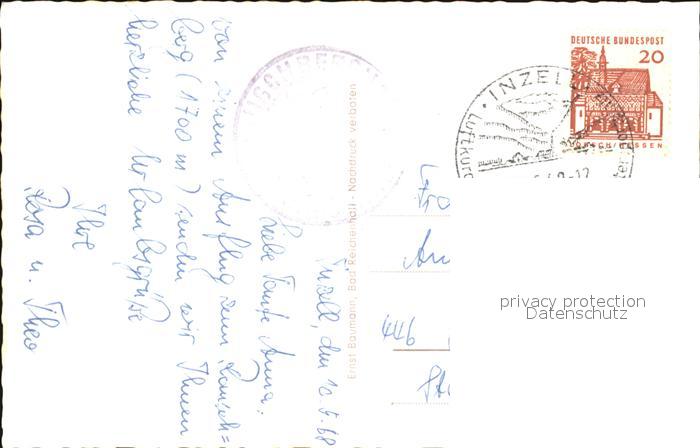 Inzell, den 10.5.68
Liebe Tante Anna.
Von einem Ausflug zum Rausch=
berg (1700 m) senden wir Ihnen
herzliche Urlaubsgrüße
Ihre
Rosa u. Theo
Ernst Baumann, Bad Reichenhall - Nachdruck verboten
INZELL
LUFTKUR
DEUTSCHE BUNDESPOST
20
LORSCH/HESSEN
446
privacy protection
Datenschutz